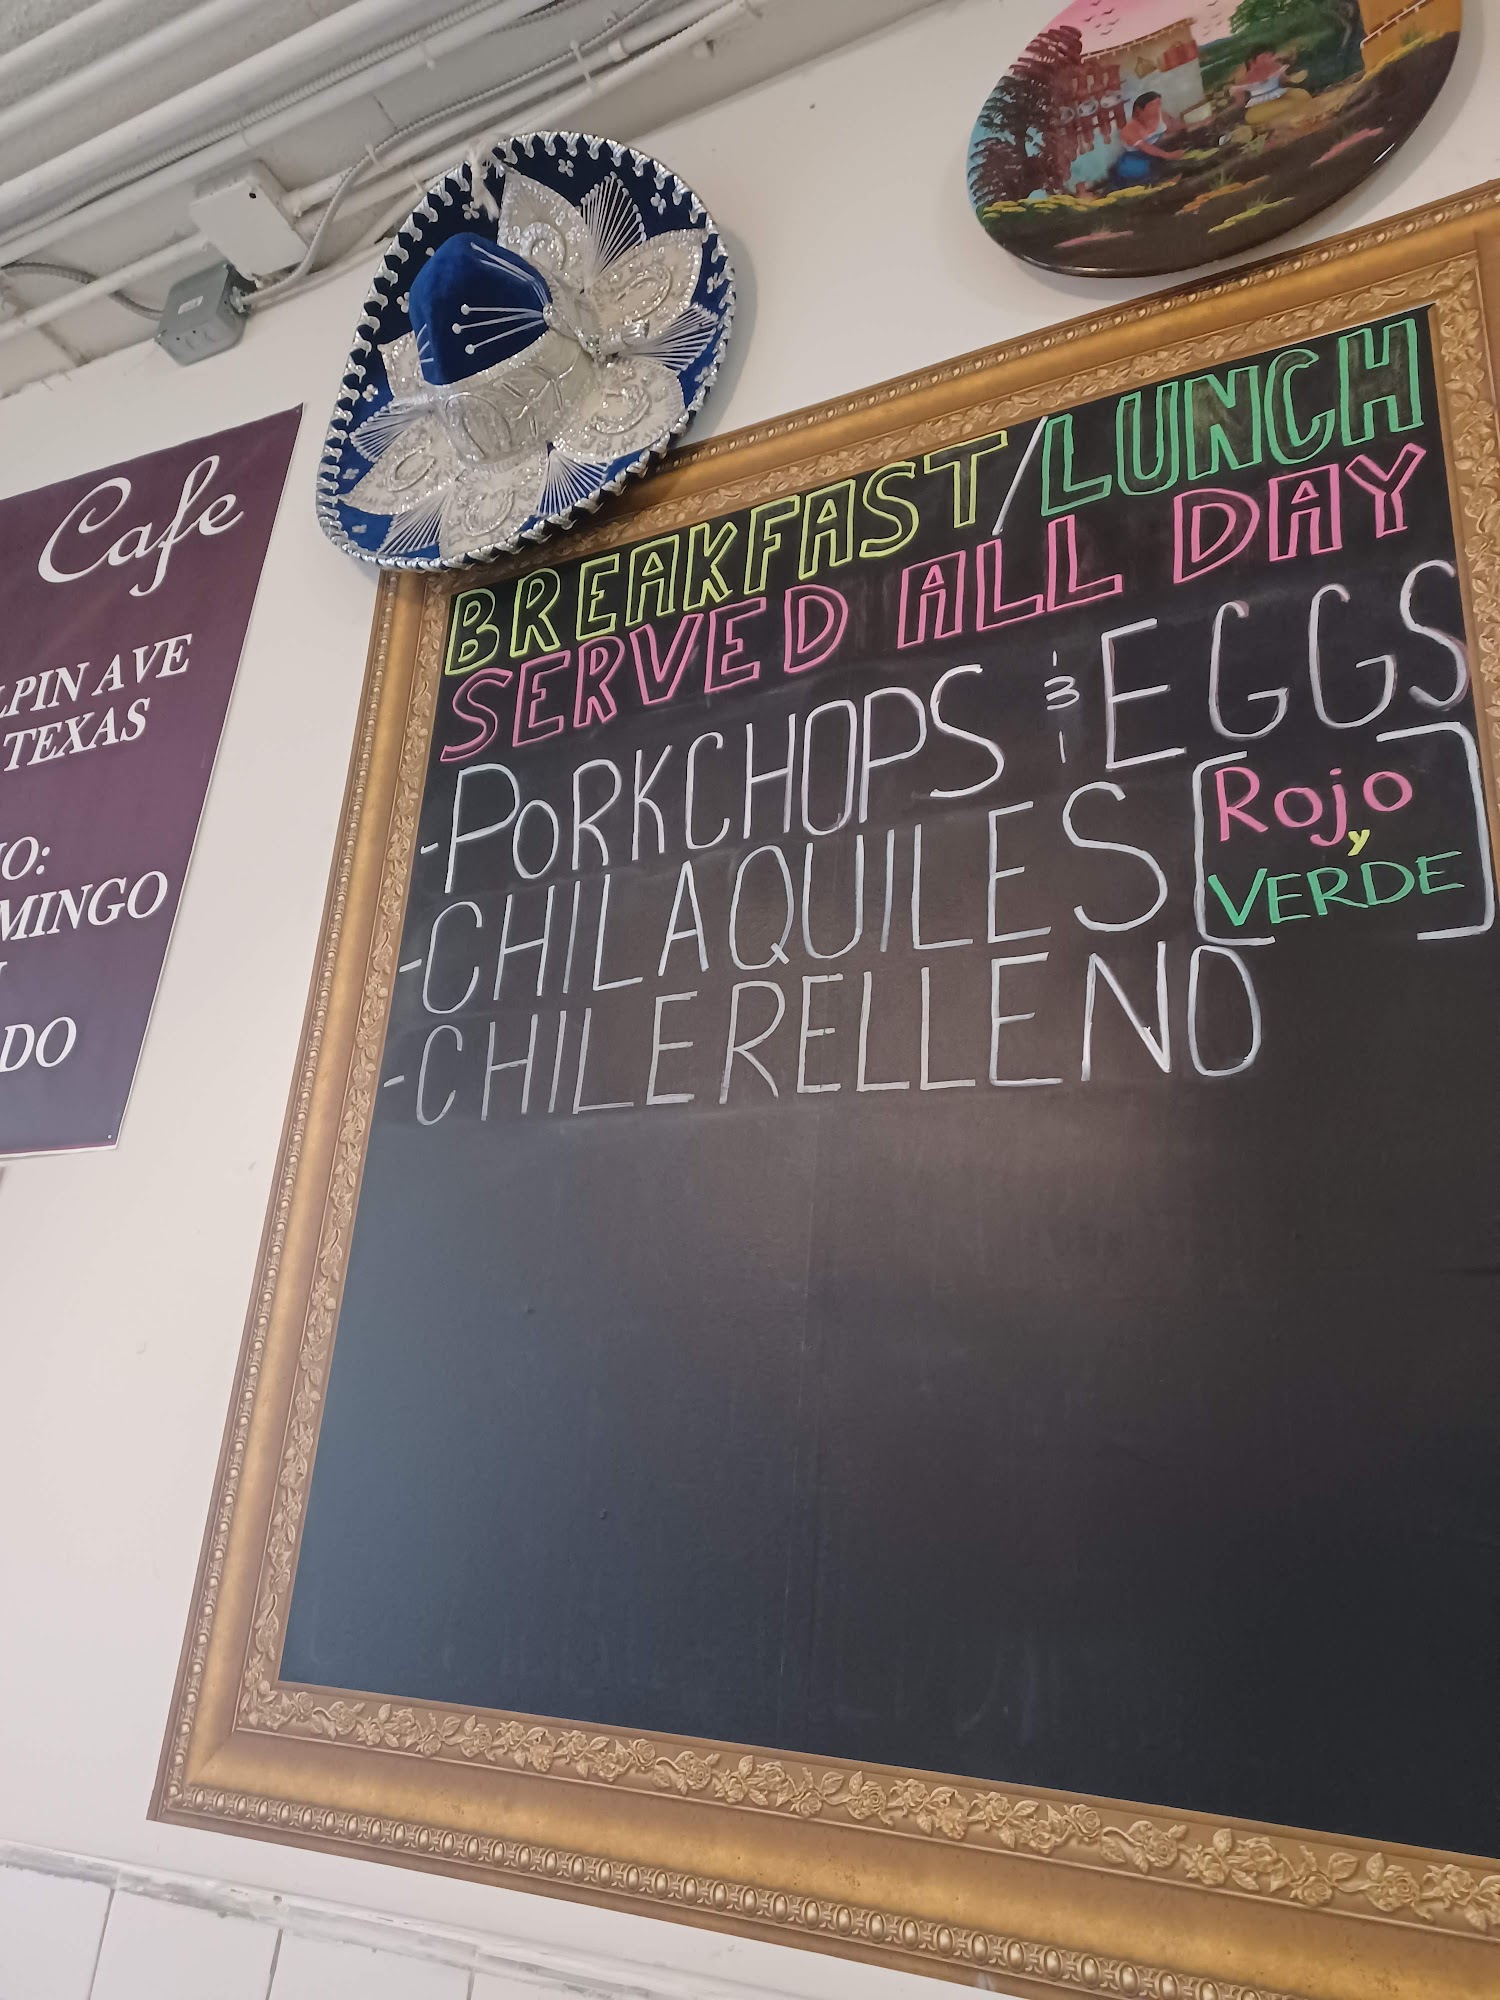 Cafe
LPIN AVE
TEXAS
O:
MINGO
DO
BREAKFAST/LUNCH
SERVED ALL DAY
-PORKCHOPS & EGGS
-CHILAQUILES [Rojo
y
VERDE]
-CHILERELLENO